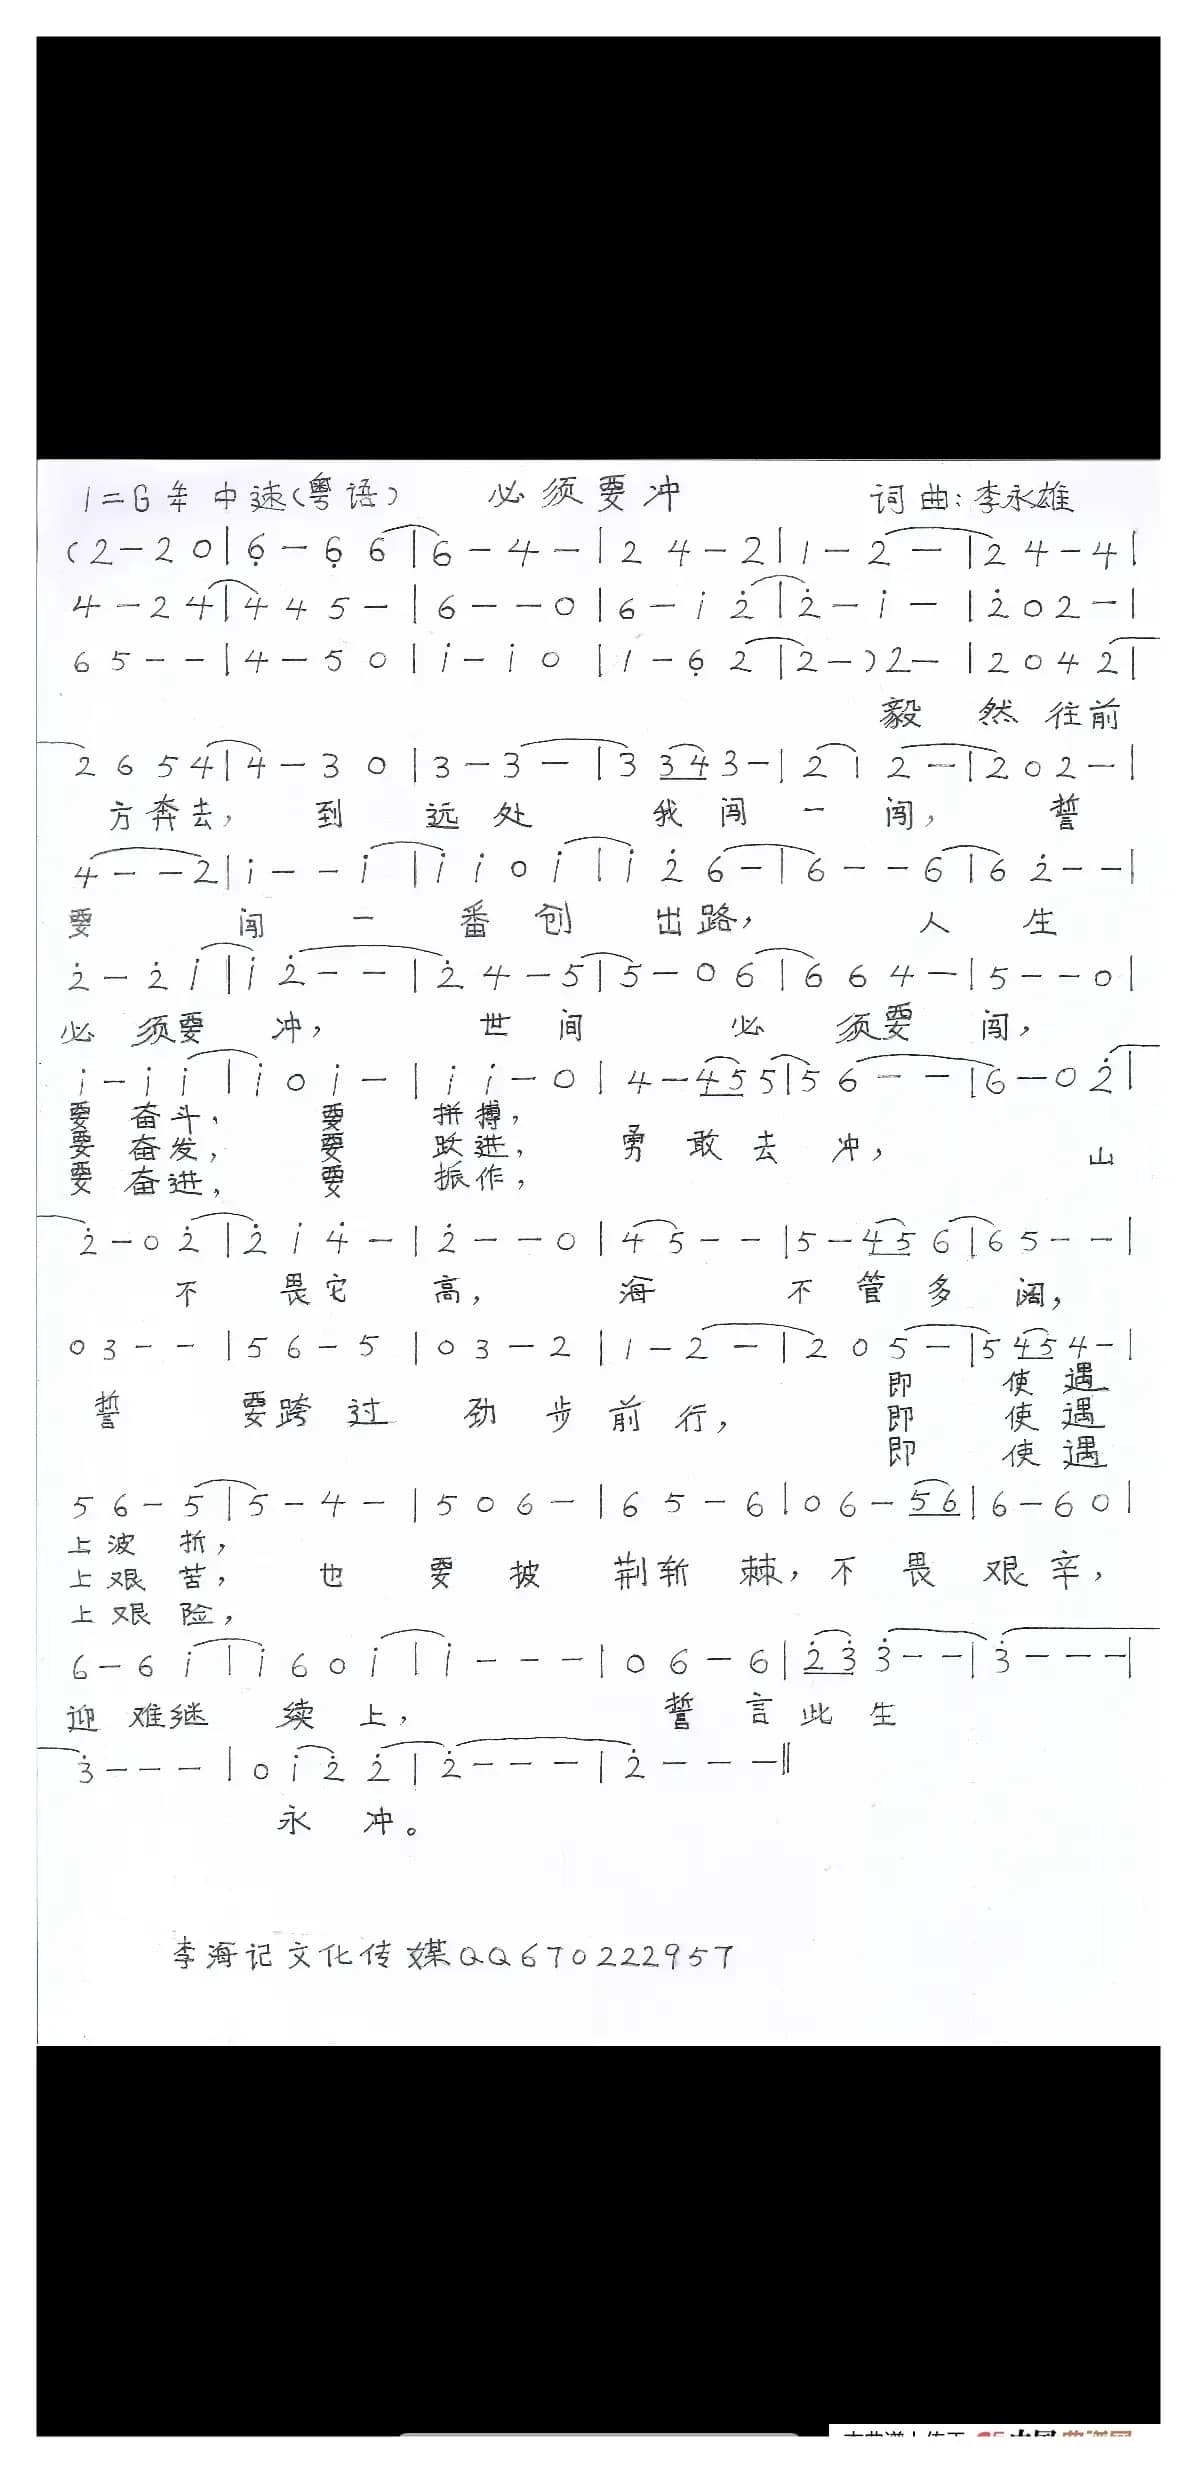 1=G 4/4 中速(粤语) 必须要冲 词曲:李永雄
(2-20|6̣-6̣6|6-4-|24-2|1-2-|24-4|
4-24|445-|6--0|6-i2̇|2̇-i-|2̇02-|
65--|4-50|i-i0|1-6̣2|2-)2-|2042|
毅然往前
2654|4-30|3-3-|3343-|212-|202-|
方奔去,到远处我闯一闯,誓
4--2|i--i|ii0i|i2̇6-|6--6|62̇--|
要闯一番创出路,人生
2̇-2̇i|i2̇--|2̇4-5|5-06|664-|5--0|
必须要冲,世间必须要闯,
i-ii|i0i-|ii-0|4-455|56--|6-02̇|
要奋斗,要拼搏,
要奋发,要跃进,勇敢去冲,山
要奋进,要振作,
2̇-02̇|2̇i4̇-|2̇--0|45--|5-456|65--|
不畏它高,海不管多阔,
03--|56-5|03-2|1-2-|205-|5454-|
即使遇
誓要跨过劲步前行,即使遇
即使遇
56-5|5-4-|506-|65-6|06-56|6-60|
上波折,
上艰苦,也要披荆斩棘,不畏艰辛,
上艰险,
6-6i|i60i|i---|06-6|2̇3̇3̇--|3̇---|
迎难继续上,誓言此生
3̇---|0i2̇2̇|2̇---|2̇---‖
永冲。
李海记文化传媒QQ670222957